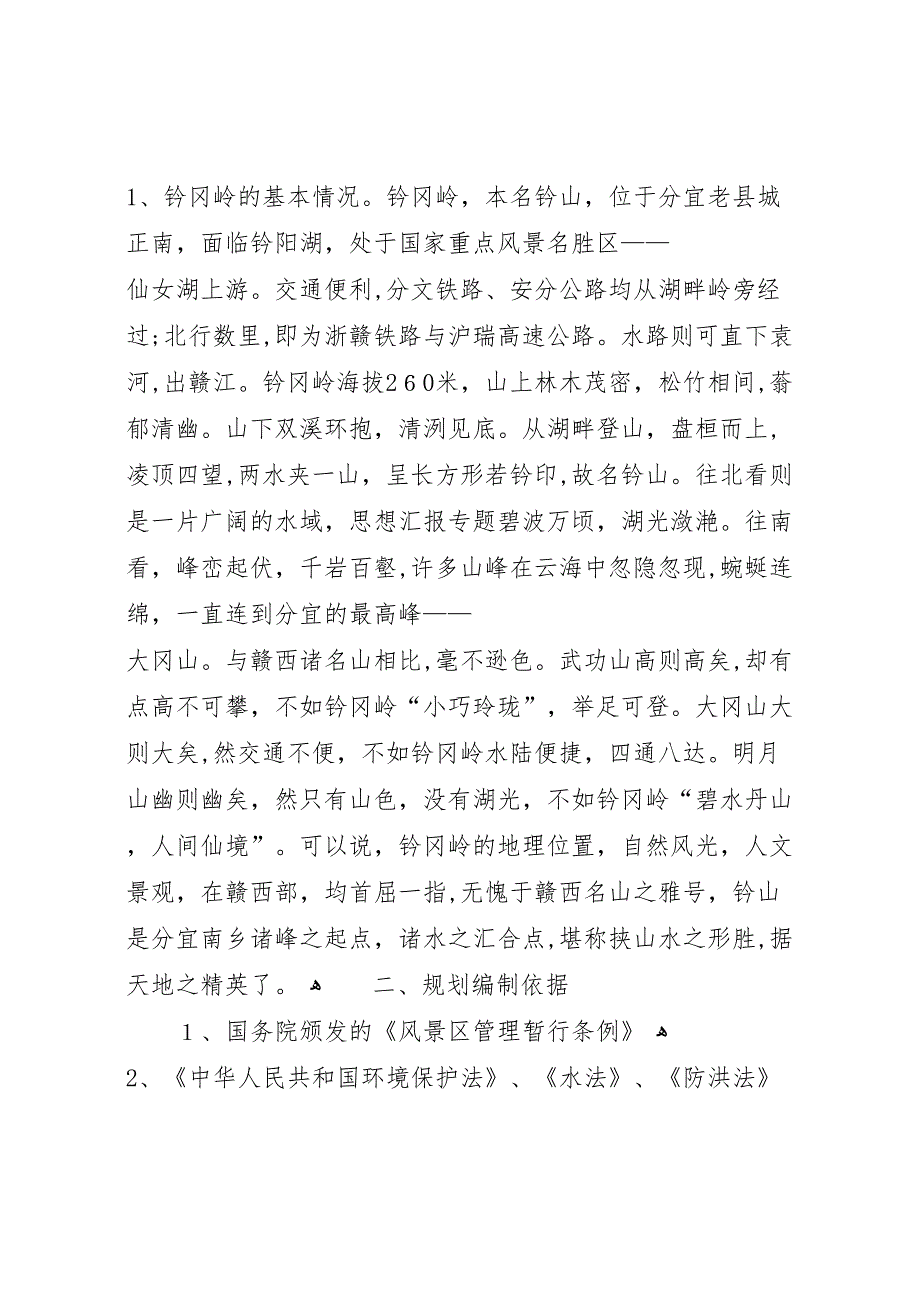 1、钤冈岭的基本情况。钤冈岭，本名钤山，位于分宜老县城
正南，面临钤阳湖，处于国家重点风景名胜区——
仙女湖上游。交通便利,分文铁路、安分公路均从湖畔岭旁经
过;北行数里,即为浙赣铁路与沪瑞高速公路。水路则可直下袁
河,出赣江。钤冈岭海拔260米，山上林木茂密，松竹相间,蓊
郁清幽。山下双溪环抱，清洌见底。从湖畔登山，盘桓而上,
凌顶四望,两水夹一山，呈长方形若钤印,故名钤山。往北看则
是一片广阔的水域，思想汇报专题碧波万顷，湖光潋滟。往南
看，峰峦起伏，千岩百壑,许多山峰在云海中忽隐忽现,蜿蜒连
绵，一直连到分宜的最高峰——
大冈山。与赣西诸名山相比,毫不逊色。武功山高则高矣,却有
点高不可攀，不如钤冈岭“小巧玲珑”，举足可登。大冈山大
则大矣,然交通不便，不如钤冈岭水陆便捷，四通八达。明月
山幽则幽矣，然只有山色，没有湖光，不如钤冈岭“碧水丹山
，人间仙境”。可以说，钤冈岭的地理位置，自然风光，人文
景观，在赣西部，均首屈一指,无愧于赣西名山之雅号，钤山
是分宜南乡诸峰之起点，诸水之汇合点,堪称挟山水之形胜,据
天地之精英了。 ﻫ 二、规划编制依据
１、国务院颁发的《风景区管理暂行条例》 ﻫ
2、《中华人民共和国环境保护法》、《水法》、《防洪法》